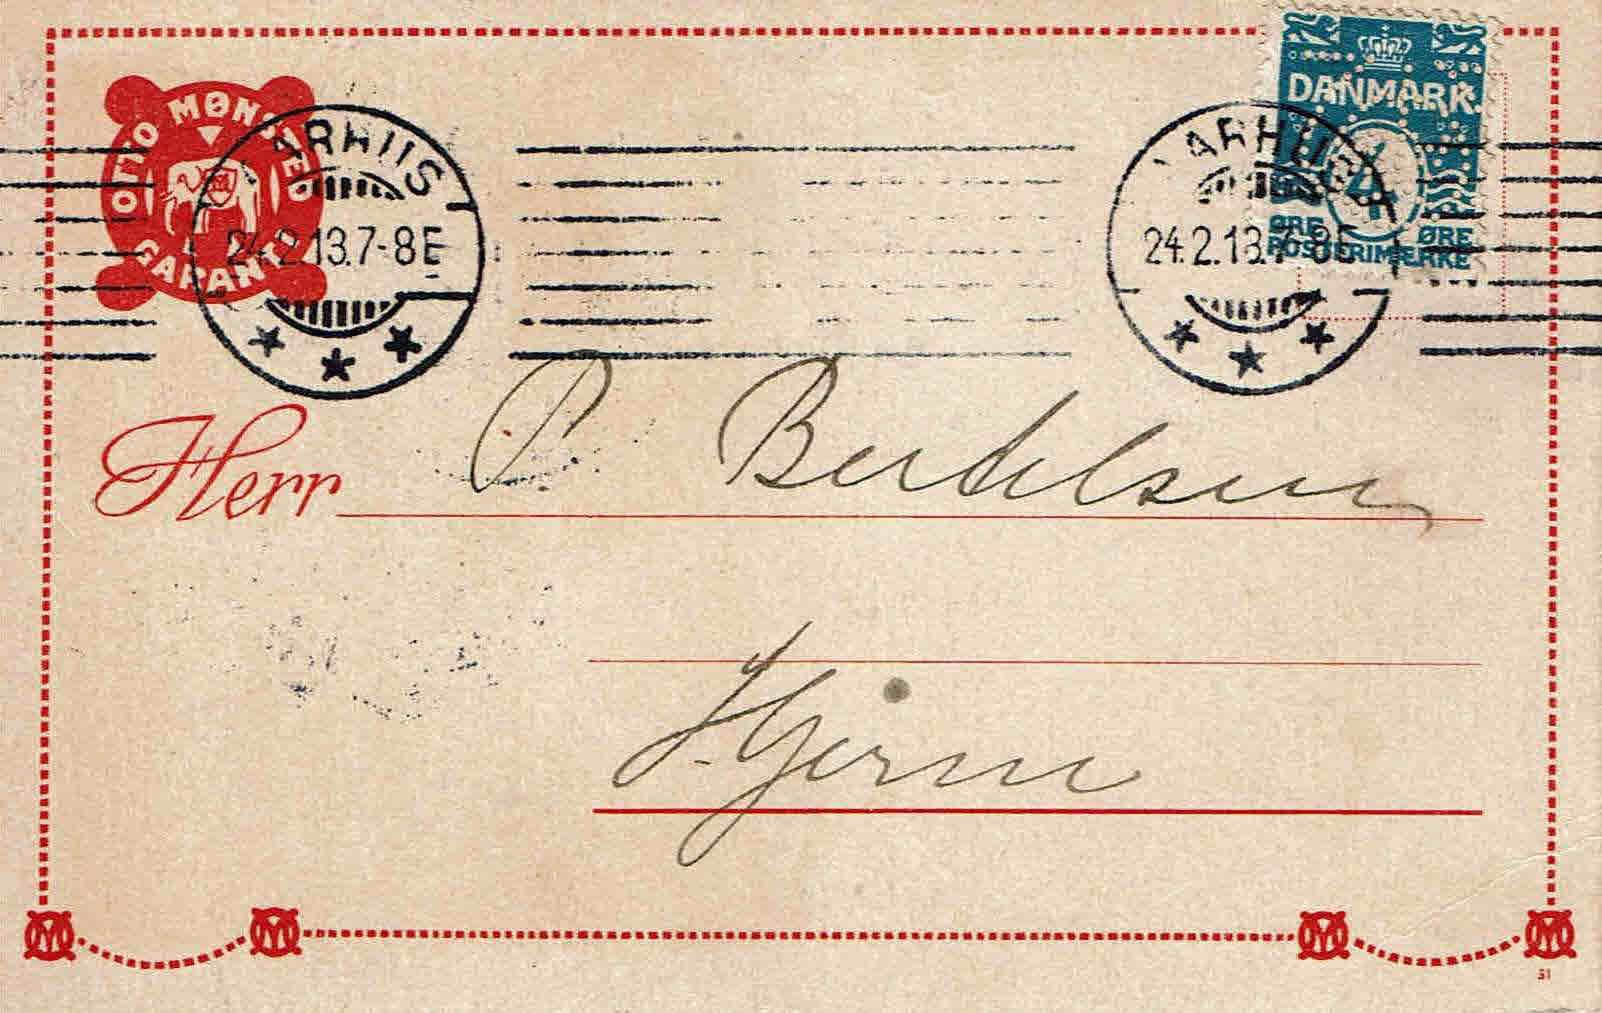 OTTO MØNSTED
GARANTI
AARHUS
24.2.13.7-8E
AARHUS
24.2.13.7-8E
DANMARK
4
ØRE ØRE
POSTFRIMÆRKE
Herr P. Bertelsen
Hjerm
OM OM OM OM
51